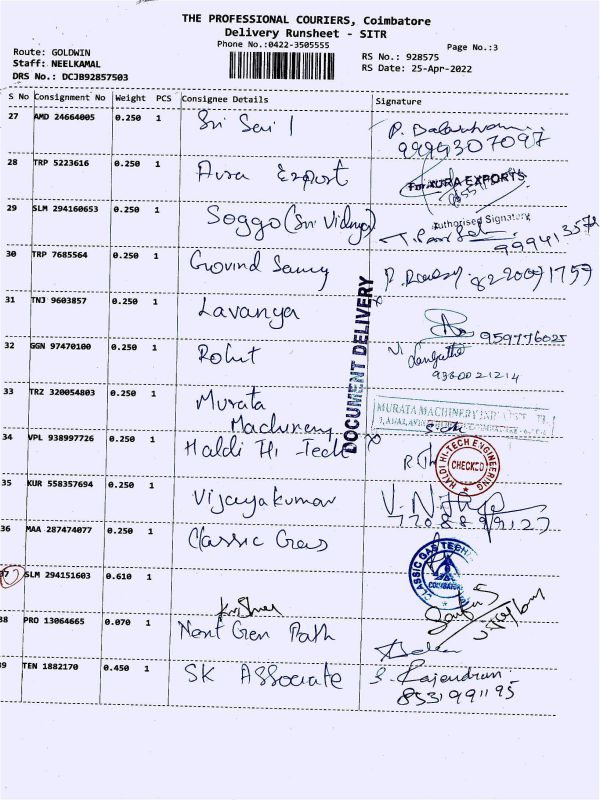 THE PROFESSIONAL COURIERS, Coimbatore
Delivery Runsheet - SITR
Phone No.:0422-3505555
Page No.:3
Route: GOLDWIN
Staff: NEELKAMAL
DRS No.: DCJB92857503
RS No.: 928575
RS Date: 25-Apr-2022
S No Consignment No Weight PCS Consignee Details Signature
27 AMD 24664005 0.250 1 Sri Sai 1
9999307097
28 TRP 5223616 0.250 1 Aura Export For AURA EXPORTS
Authorised Signatory
29 SLM 294160653 0.250 1 Soggo (Sri Vidya)
30 TRP 7685564 0.250 1 Govind Samy
31 TNJ 9603857 0.250 1 Lavanya 959776025
32 GGN 97470100 0.250 1 Rohit
9380021214
DOCUMENT DELIVERY
33 TRZ 320054803 0.250 1 Murata Machinery MURATA MACHINERY
34 VPL 938997726 0.250 1 Haldi Hi-Tech HALDI HI-TECH ENGINEERING CHECKED
35 KUR 558357694 0.250 1 Vijayakumar
36 MAA 287474077 0.250 1 Classic Gas CLASSIC GAS TECH COIMBATORE
37 SLM 294151603 0.610 1
38 PRO 13064665 0.070 1 Next Gen Path
39 TEN 1882170 0.450 1 SK Associate S. Rajendran
8531991195